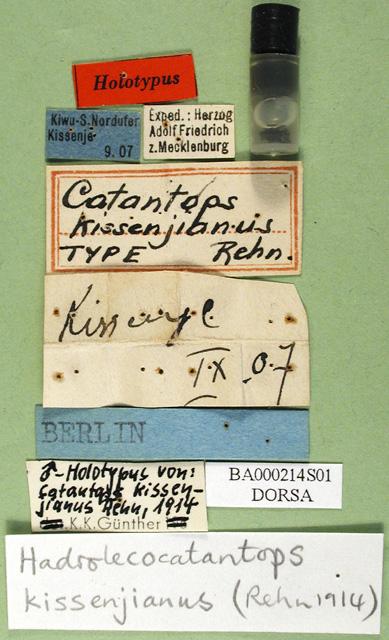 Holotypus
Kiwu-S.Nordufer
Kissenje
9.07
Exped.: Herzog
Adolf Friedrich
z.Mecklenburg
Catantops
kissenjianus
TYPE Rehn.
IX 0.7
BERLIN
♂-Holotypus von:
Catantops kissen-
jianus Rehn, 1914
K.K.Günther
BA000214S01
DORSA
Hadrolecocatantops
kissenjianus (Rehn 1914)